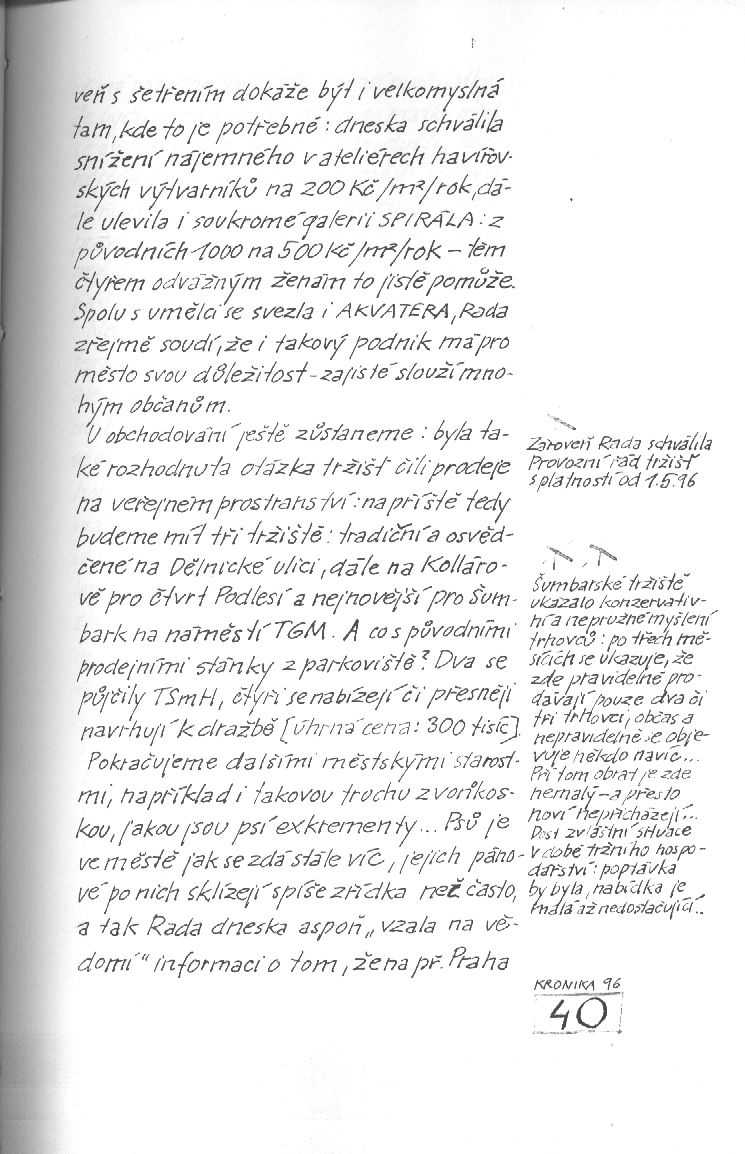 veň s šetřením dokáže být i velkomyslná
tam, kde to je potřebné: dneska schválila
snížení nájemného v ateliérech havířov-
ských výtvarníků na 200 Kč/m²/rok, dá-
le ulevila i soukromé galerii SPIRÁLA: z
původních 1000 na 500 Kč/m²/rok – těm
čtyřem odvážným ženám to jistě pomůže.
Spolu s umělci se svezla i AKVATERA, Rada
zřejmě soudí, že i takový podnik má pro
město svou důležitost – zajisté slouží mno-
hým občanům.
U obchodování ještě zůstaneme: byla ta-
ké rozhodnuta otázka tržišť čili prodeje
na veřejném prostranství: napříště tedy
budeme mít tři tržiště: tradiční a osvěd-
čené na Dělnické ulici, dále na Kolláro-
vě pro čtvrť Podlesí a nejnovější pro Šum-
bark na náměstí TGM. A co s původními
prodejními stánky z parkoviště? Dva se
půjčily TSmH, čtyři se nabízejí či přesněji
navrhují k dražbě [úhrná cena: 300 tisíc].
Pokračujeme dalšími městskými starost-
mi, například i takovou trochu zvoňkos-
kou, jakou jsou psí exkrementy... Psů je
ve městě jak se zdá stále víc, jejich páno-
vé po nich sklízejí spíše zřídka než často,
a tak Rada dneska aspoň „vzala na vě-
domí“ informaci o tom, že na př. Praha
Zároveň Rada schválila
Provozní řád tržišť
s platností od 1.5.96
Šumbarské tržiště
ukázalo konzervativ-
ní a nepružné myšlení
trhovců: po třech mě-
sících se ukazuje, že
zde pravidelně pro-
dávají pouze dva či
tři trhovci, občas a
nepravidelně se obje-
vuje někdo navíc...
Při tom obrat je zde
nemalý – a přesto
noví nepřicházejí...
Dost zvláštní situace
v době tržního hospo-
dářství: poptávka
by byla, nabídka je
malá až nedostačující..
KRONIKA 96
40